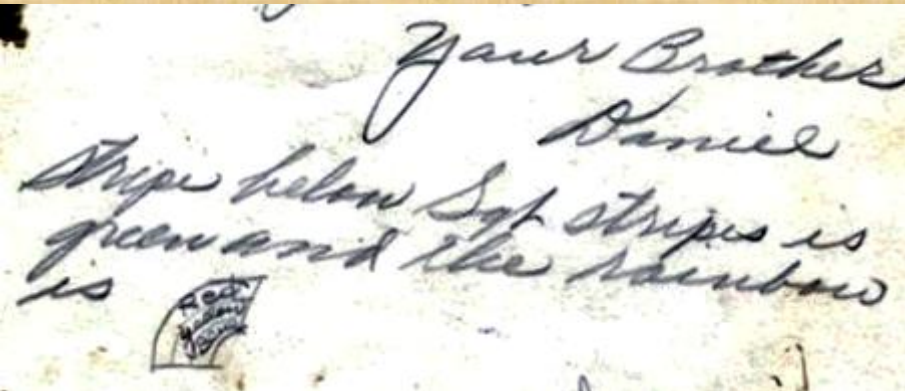 Your Brother
Daniel
Stripe below Sgt stripes is
green and the rainbow
is
Red
yellow